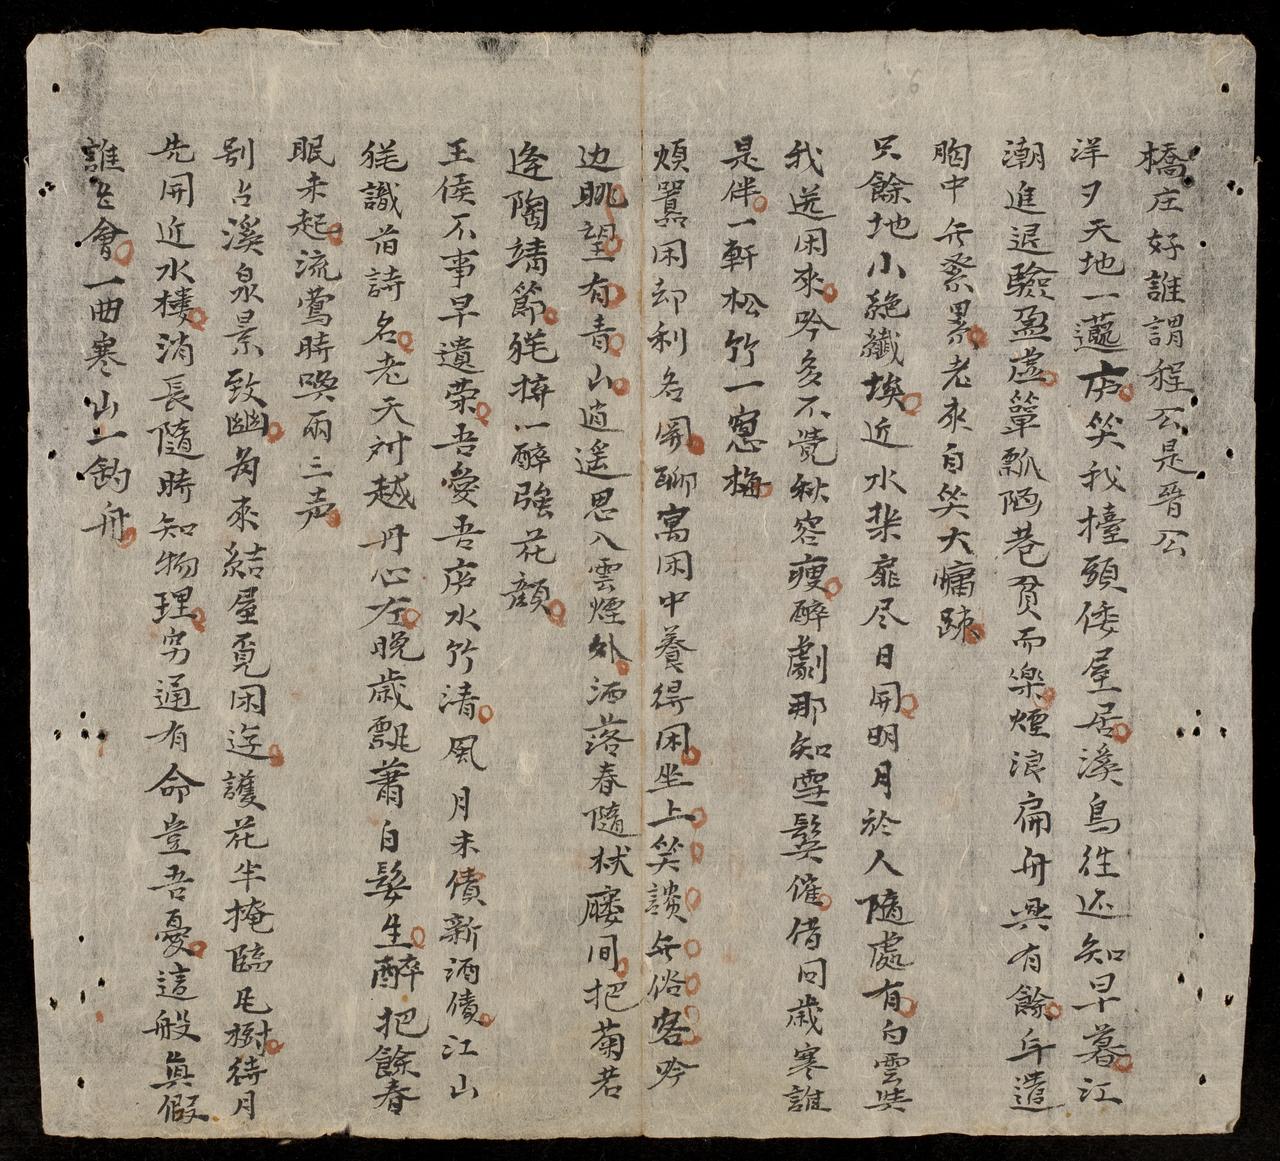 橋庄好誰謂程公是晉公
洋々天地一蘧庐笑我擡頭倭屋居溪鳥往还知早暮江
潮進退驗盈虚簞瓢陋巷貧而樂煙浪扁舟興有餘年遣
胸中无系累老來自笑大慵踈
只餘地小絶纖埃近水柴扉尽日開明月於人隨處有白雲共
我迯闲來吟多不覺秋容瘦醉劇那知雪鬂催借问歳寒誰
是伴一軒松竹一窻梅
煩嚣闲却利名関聊寓闲中養得闲坐上笑談无俗客吟
边眺望有青山逍遥思入雲煙外洒落春隨杖屨间把菊若
逢陶靖節㲯擠一醉強花顔
王侯不事早遺荣吾愛吾庐水竹清風月未債新酒債江山
㲯識旧詩名老天対越丹心在晚歳飄萧白髮生醉把餘春
眠未起流鶯時喚兩三声
别占溪泉景致幽角來結屋覓闲逰護花半掩臨𡰱樹待月
先開近水樓消長隨時知物理穷通有命豈吾憂這般真假
誰㠯會一曲寒山一釣舟